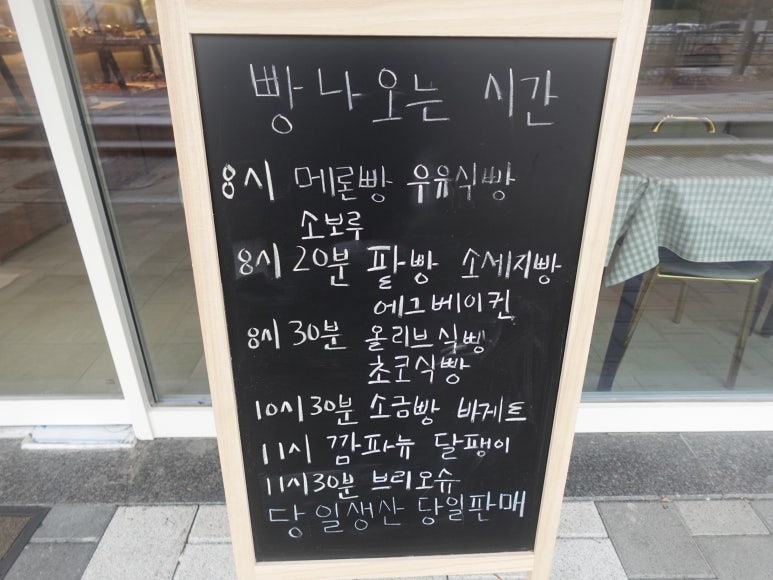 빵 나 오 는 시간
8시 메론빵 우유식빵
소보루
8시 20분 팥빵 소세지빵
에그베이컨
8시 30분 올리브식빵
초코식빵
10시30분 소금빵 바게트
11시 깜파뉴 달팽이
11시30분 브리오슈
당일생산 당일판매